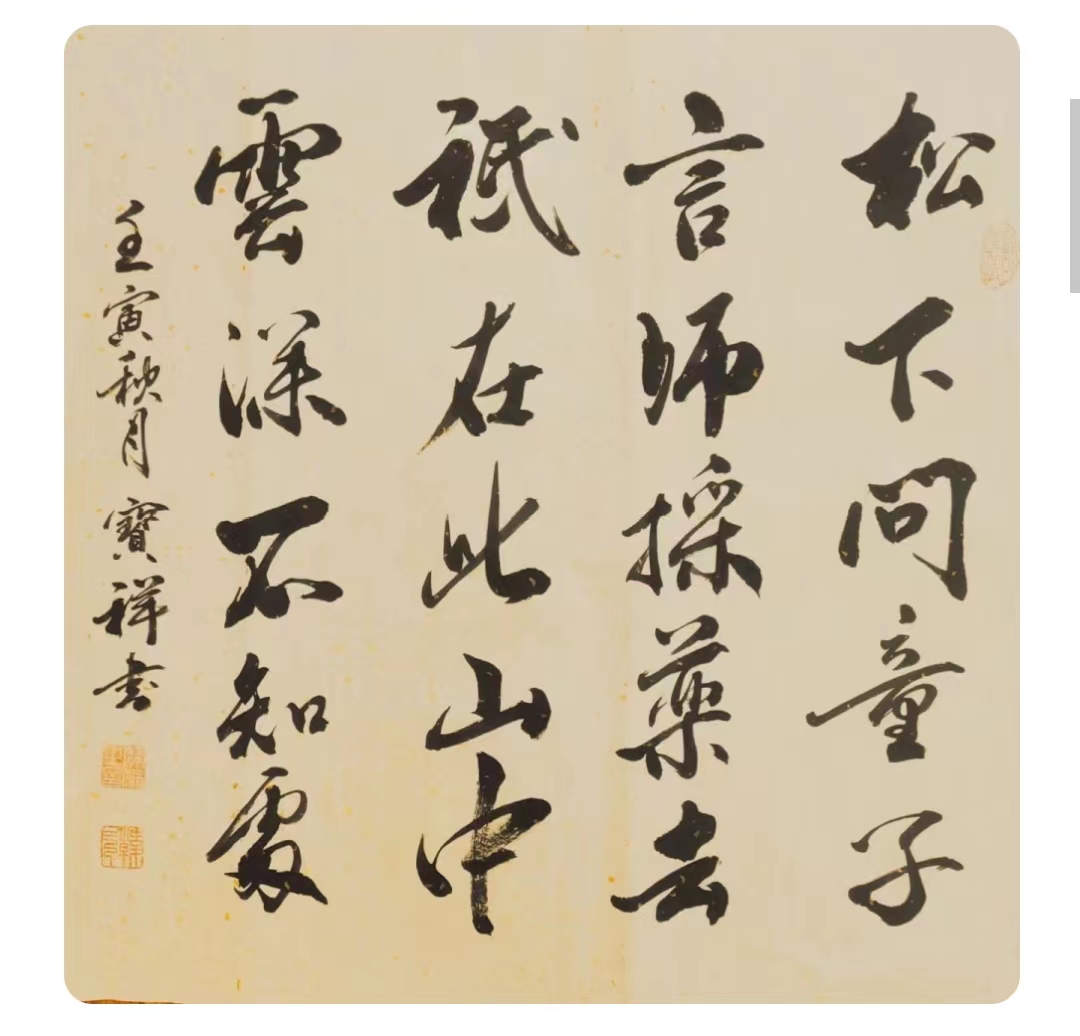 松下問童子
言師採藥去
祇在此山中
雲深不知處
壬寅秋月寶祥书